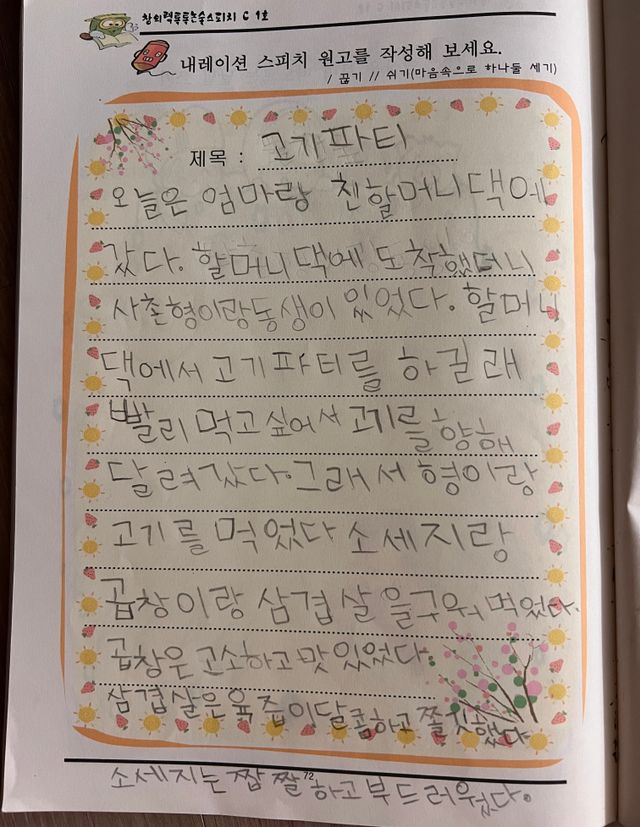 창의력쑥쑥논술스피치 C 1호
내레이션 스피치 원고를 작성해 보세요.
/ 끊기 // 쉬기(마음속으로 하나둘 세기)
제목 : 고기파티
오늘은 엄마랑 친할머니댁에
갔다. 할머니댁에 도착했더니
사촌형이랑동생이 있었다. 할머니
댁에서 고기파티를 하길래
빨리 먹고싶어서 고기를향해
달려갔다.그래서 형이랑
고기를 먹었다 소세지랑
곱창이랑 삼겹살을구워 먹었다.
곱창은 고소하고 맛있었다.
삼겹살은육즙이달콤하고 쫄깃했다
소세지는 짭짤하고 부드러웠다.
72